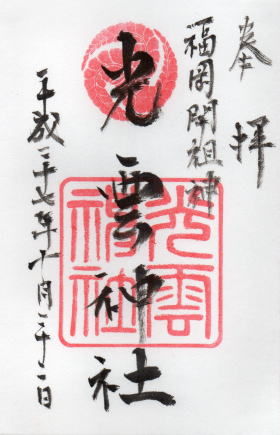 奉拝
福岡開祖神
光雲神社
光雲神社
平成二十七年十一月二十二日